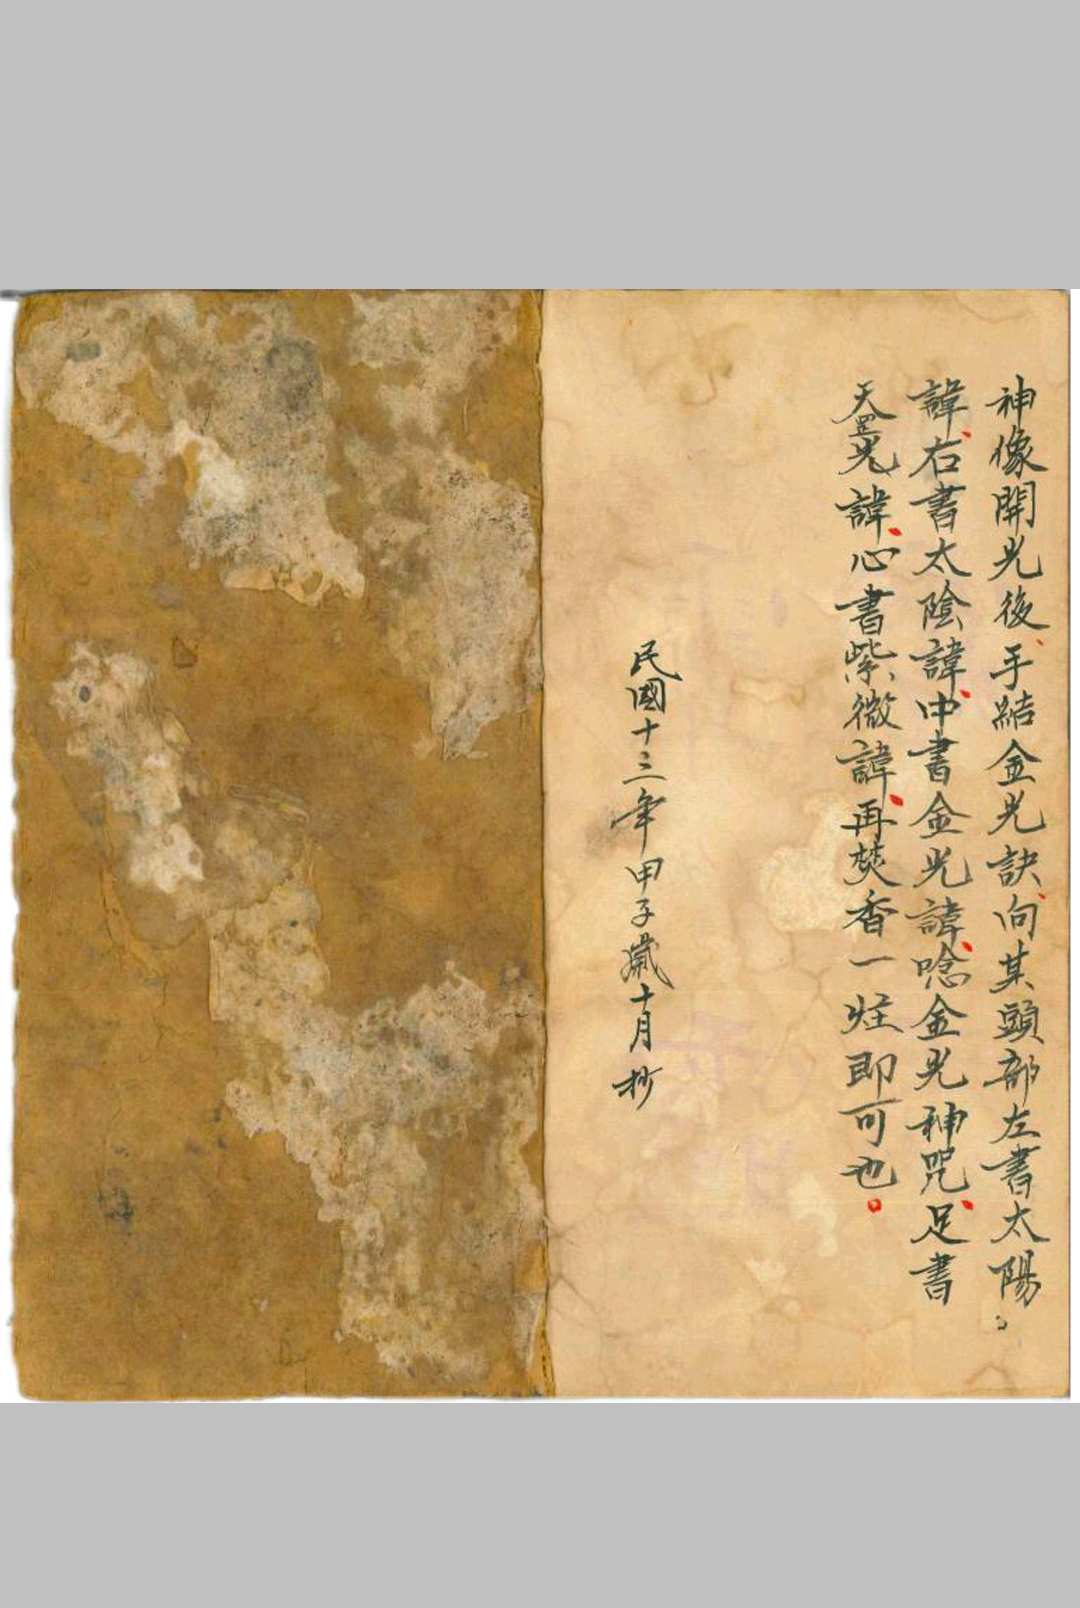 神像開光後、手結金光訣、向其頭部左書太陽
諱、右書太陰諱、中書金光諱、唸金光神咒、足書
天罡光諱、心書紫微諱、再焚香一炷即可也。
民國十三年甲子歲十月抄